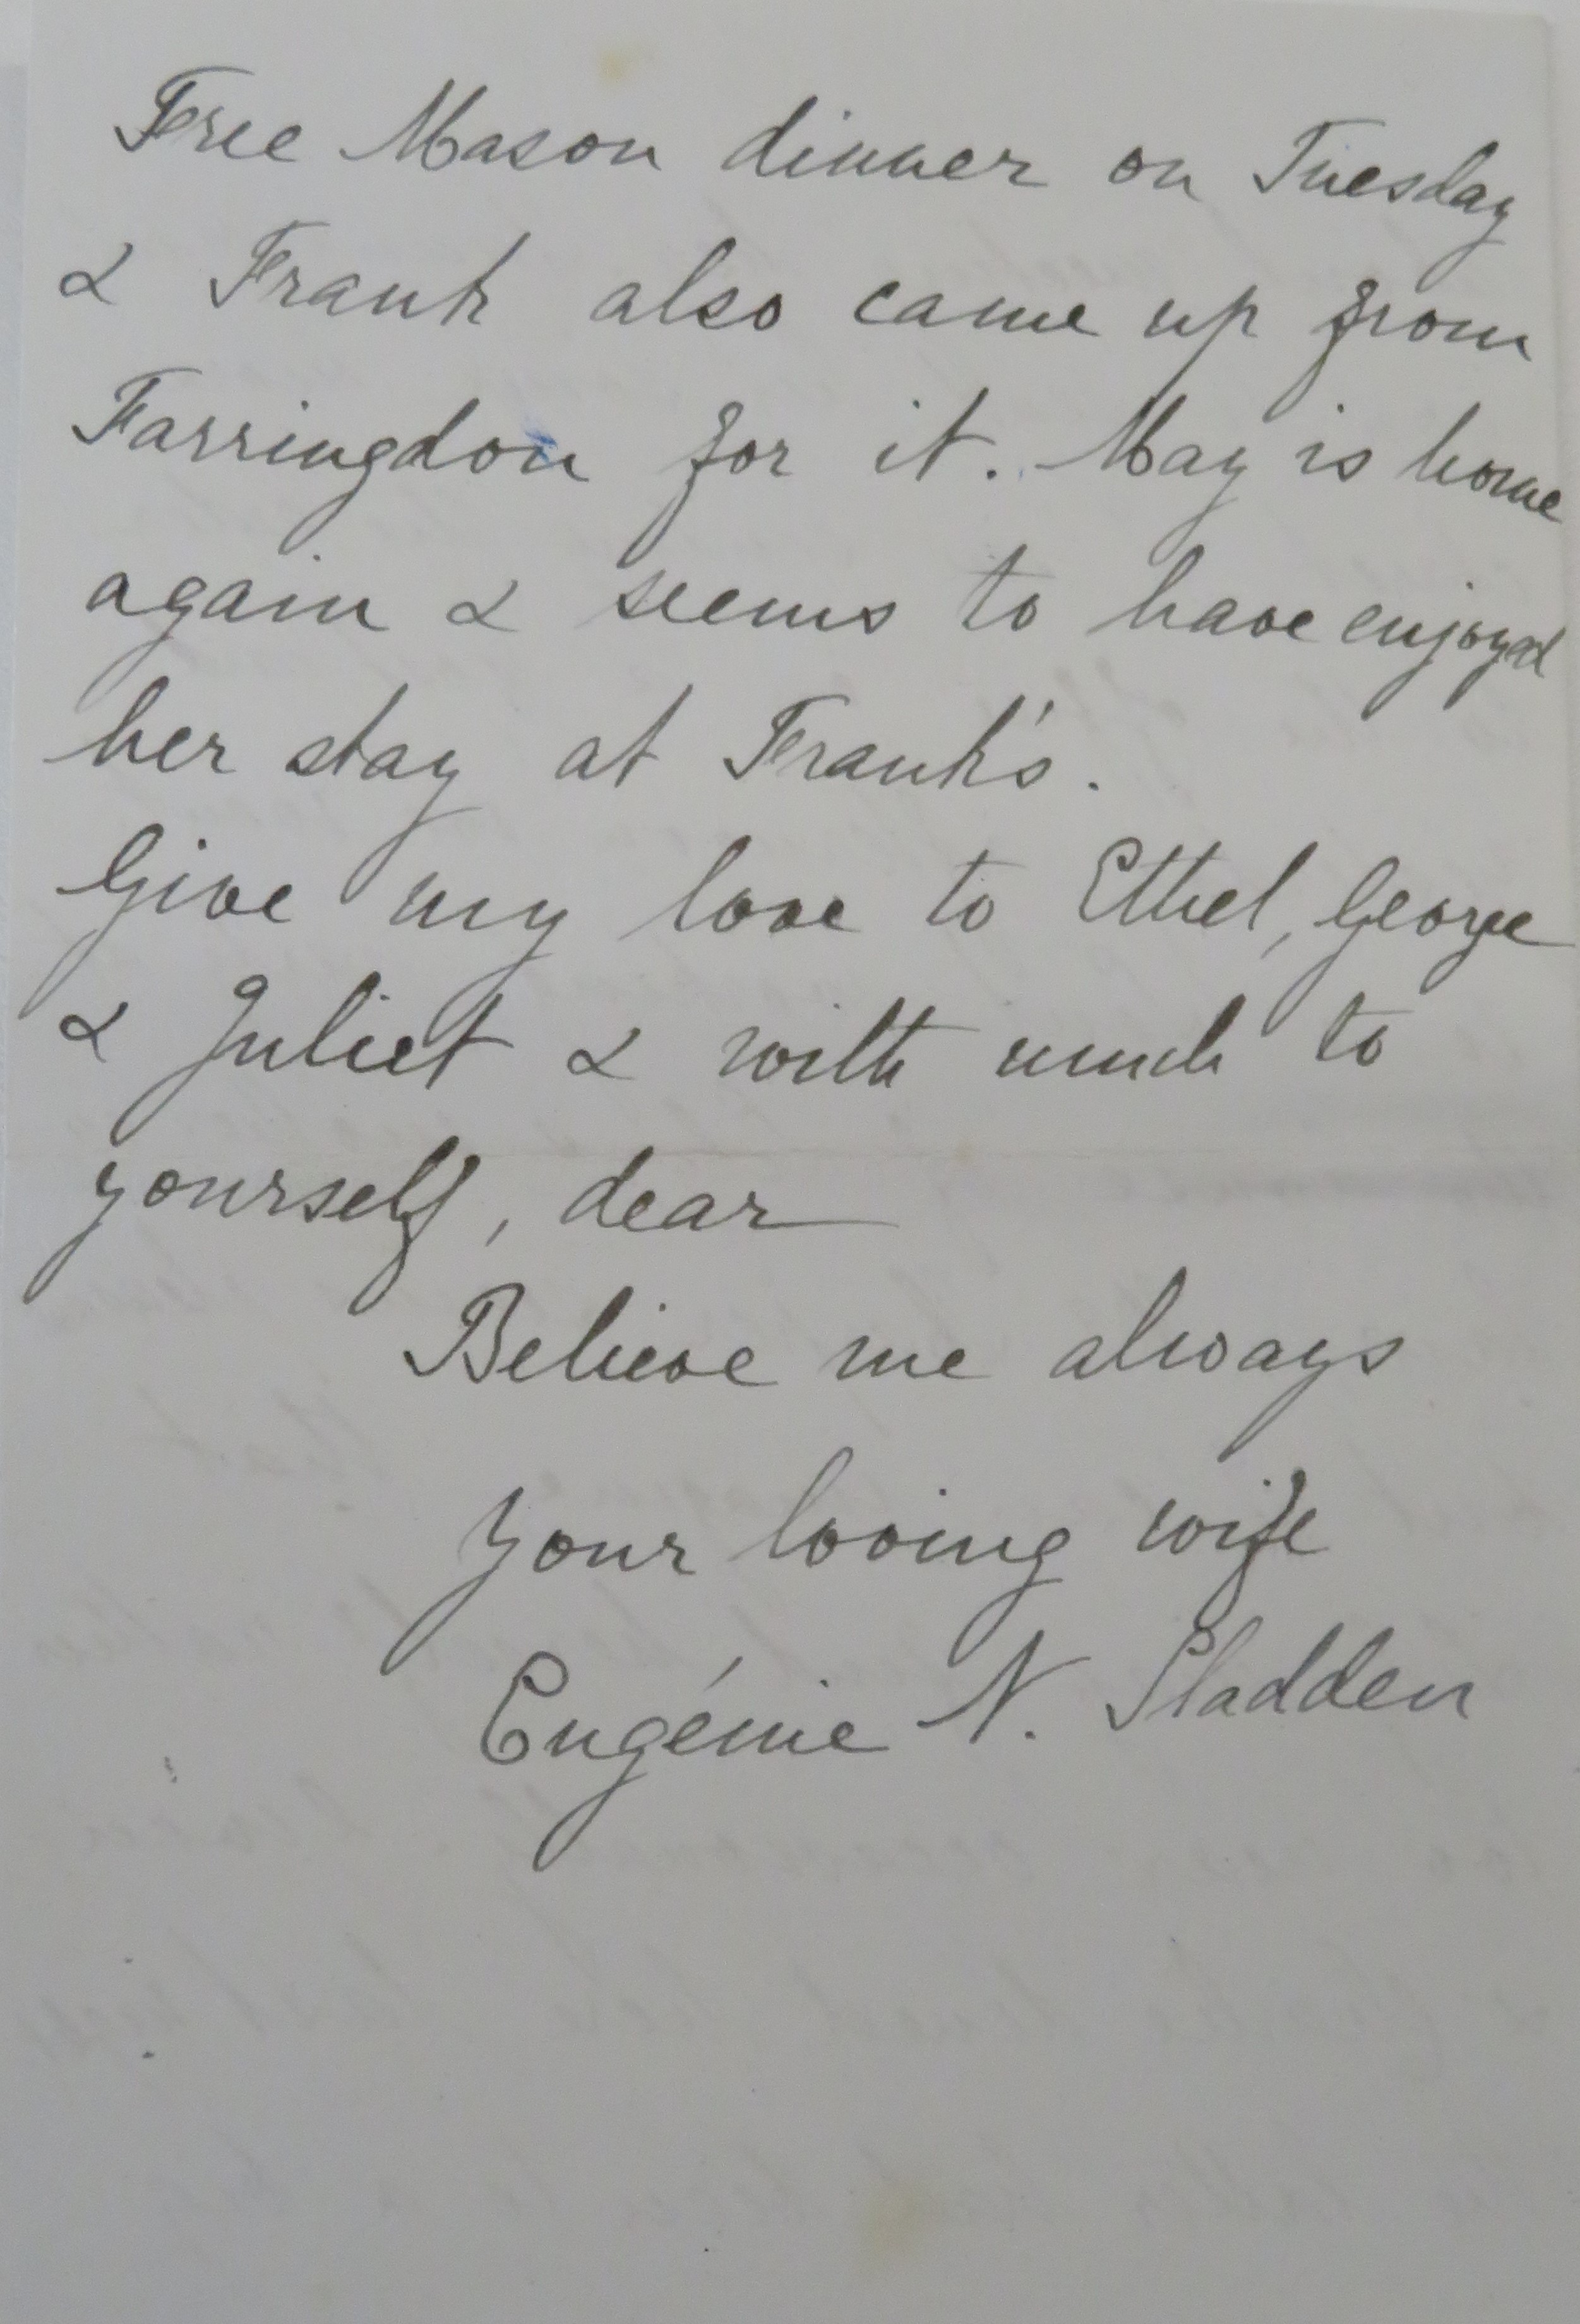 Free Mason dinner on Tuesday
& Frank also came up from
Farringdon for it. May is home
again & seems to have enjoyed
her stay at Frank's.
Give my love to Ethel, George
& Juliet & with much to
yourself, dear
Believe me always
your loving wife
Eugénie N. Sladden